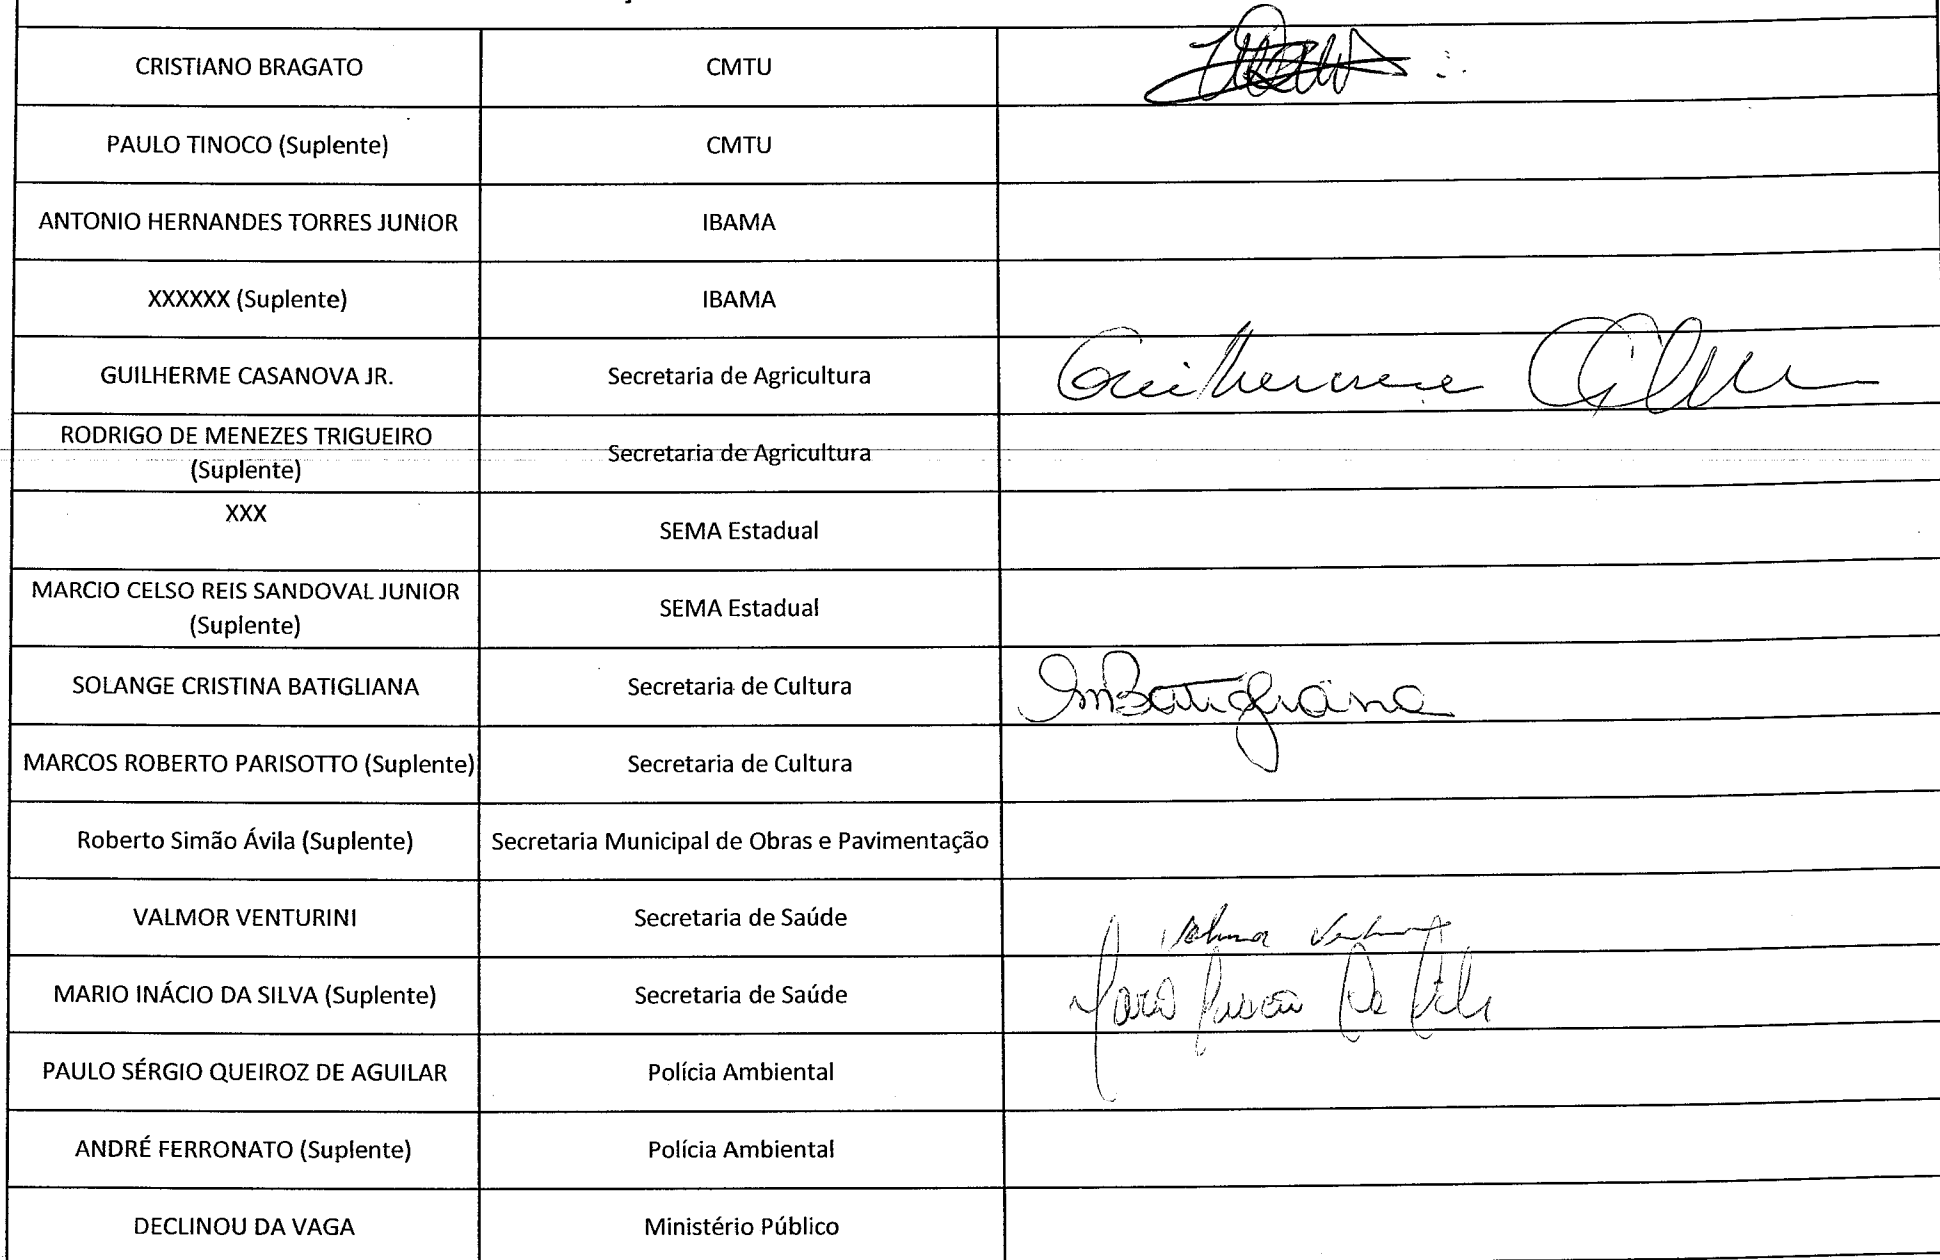 CRISTIANO BRAGATO CMTU
PAULO TINOCO (Suplente) CMTU
ANTONIO HERNANDES TORRES JUNIOR IBAMA
XXXXXX (Suplente) IBAMA
GUILHERME CASANOVA JR. Secretaria de Agricultura Guilherme
RODRIGO DE MENEZES TRIGUEIRO
(Suplente) Secretaria de Agricultura
XXX
SEMA Estadual
MARCIO CELSO REIS SANDOVAL JUNIOR
(Suplente) SEMA Estadual
SOLANGE CRISTINA BATIGLIANA Secretaria de Cultura
MARCOS ROBERTO PARISOTTO (Suplente) Secretaria de Cultura
Roberto Simão Ávila (Suplente) Secretaria Municipal de Obras e Pavimentação
VALMOR VENTURINI Secretaria de Saúde
MARIO INÁCIO DA SILVA (Suplente) Secretaria de Saúde
PAULO SÉRGIO QUEIROZ DE AGUILAR Polícia Ambiental
ANDRÉ FERRONATO (Suplente) Polícia Ambiental
DECLINOU DA VAGA Ministério Público